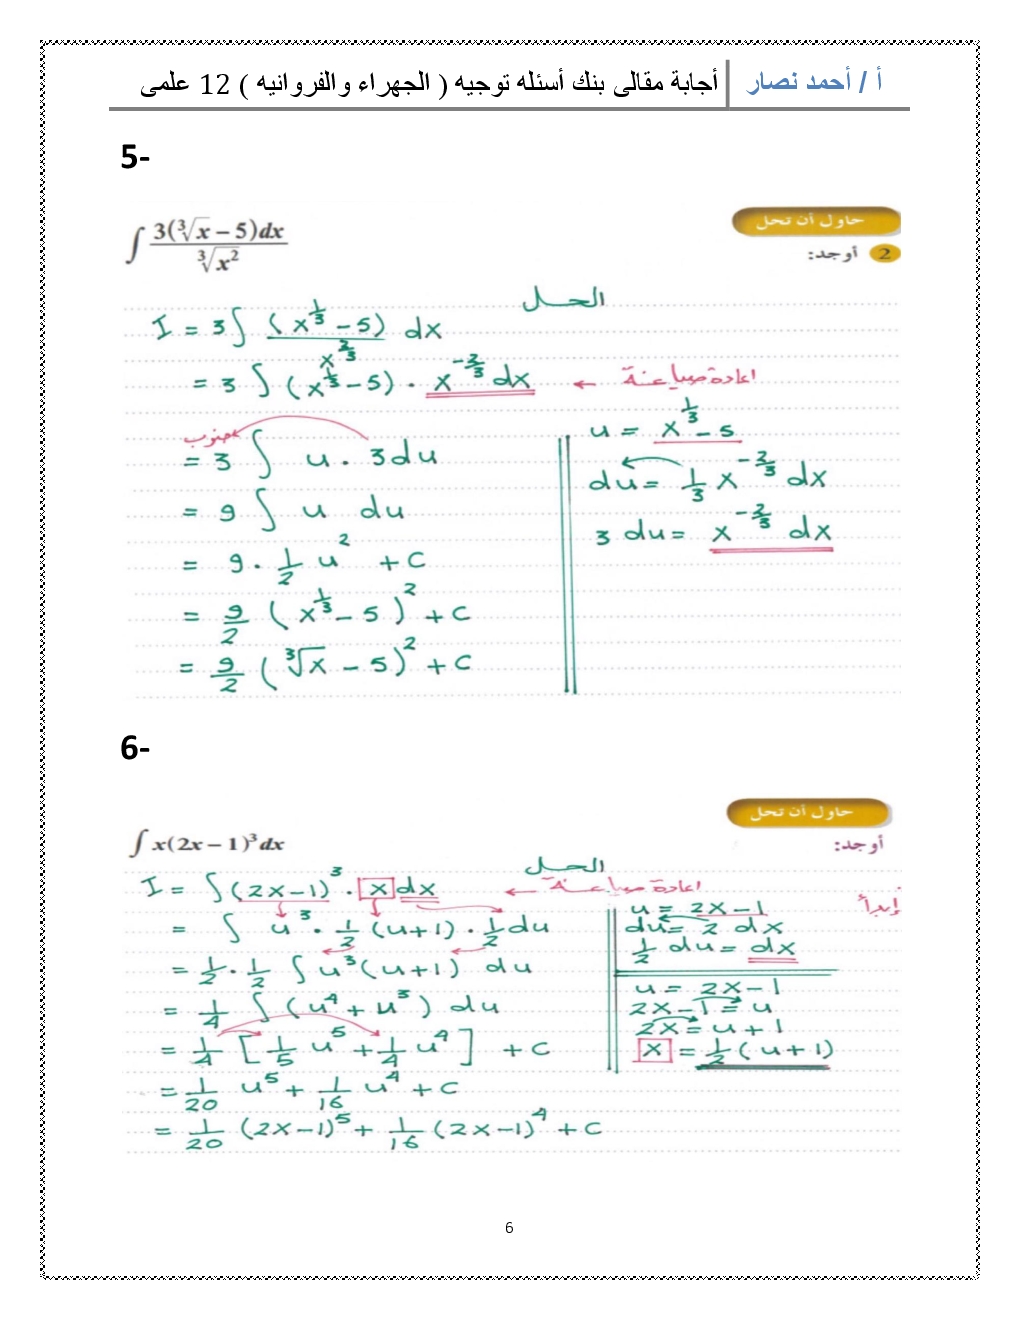 أ / أحمد نصار
أجابة مقالى بنك أسئله توجيه ( الجهراء والفروانيه ) 12 علمى
5-
حاول أن تحل
2 أوجد:
∫ 3(∛x – 5)dx / ∛x²
الحل
I = 3∫ (x^(1/3) – 5) / x^(2/3) dx
= 3 ∫ (x^(1/3) – 5) · x^(-2/3) dx ← اعادة صياغة
= 3 ∫ u · 3du
= 9 ∫ u du
= 9 · 1/2 u² + C
= 9/2 (x^(1/3) – 5)² + C
= 9/2 (∛x – 5)² + C
u = x^(1/3) – 5
du = 1/3 x^(-2/3) dx
3 du = x^(-2/3) dx
6-
حاول أن تحل
أوجد:
∫ x(2x – 1)³ dx
الحل
I = ∫ (2x–1)³ · x dx ← اعادة صياغة
= ∫ u³ · 1/2 (u+1) · 1/2 du
= 1/2 · 1/2 ∫ u³ (u+1) du
= 1/4 ∫ (u⁴ + u³) du
= 1/4 [ 1/5 u⁵ + 1/4 u⁴ ] + C
= 1/20 u⁵ + 1/16 u⁴ + C
= 1/20 (2x–1)⁵ + 1/16 (2x–1)⁴ + C
إبدأ
u = 2x–1
du = 2 dx
1/2 du = dx
u = 2x–1
2x–1 = u
2x = u+1
x = 1/2 (u+1)
6